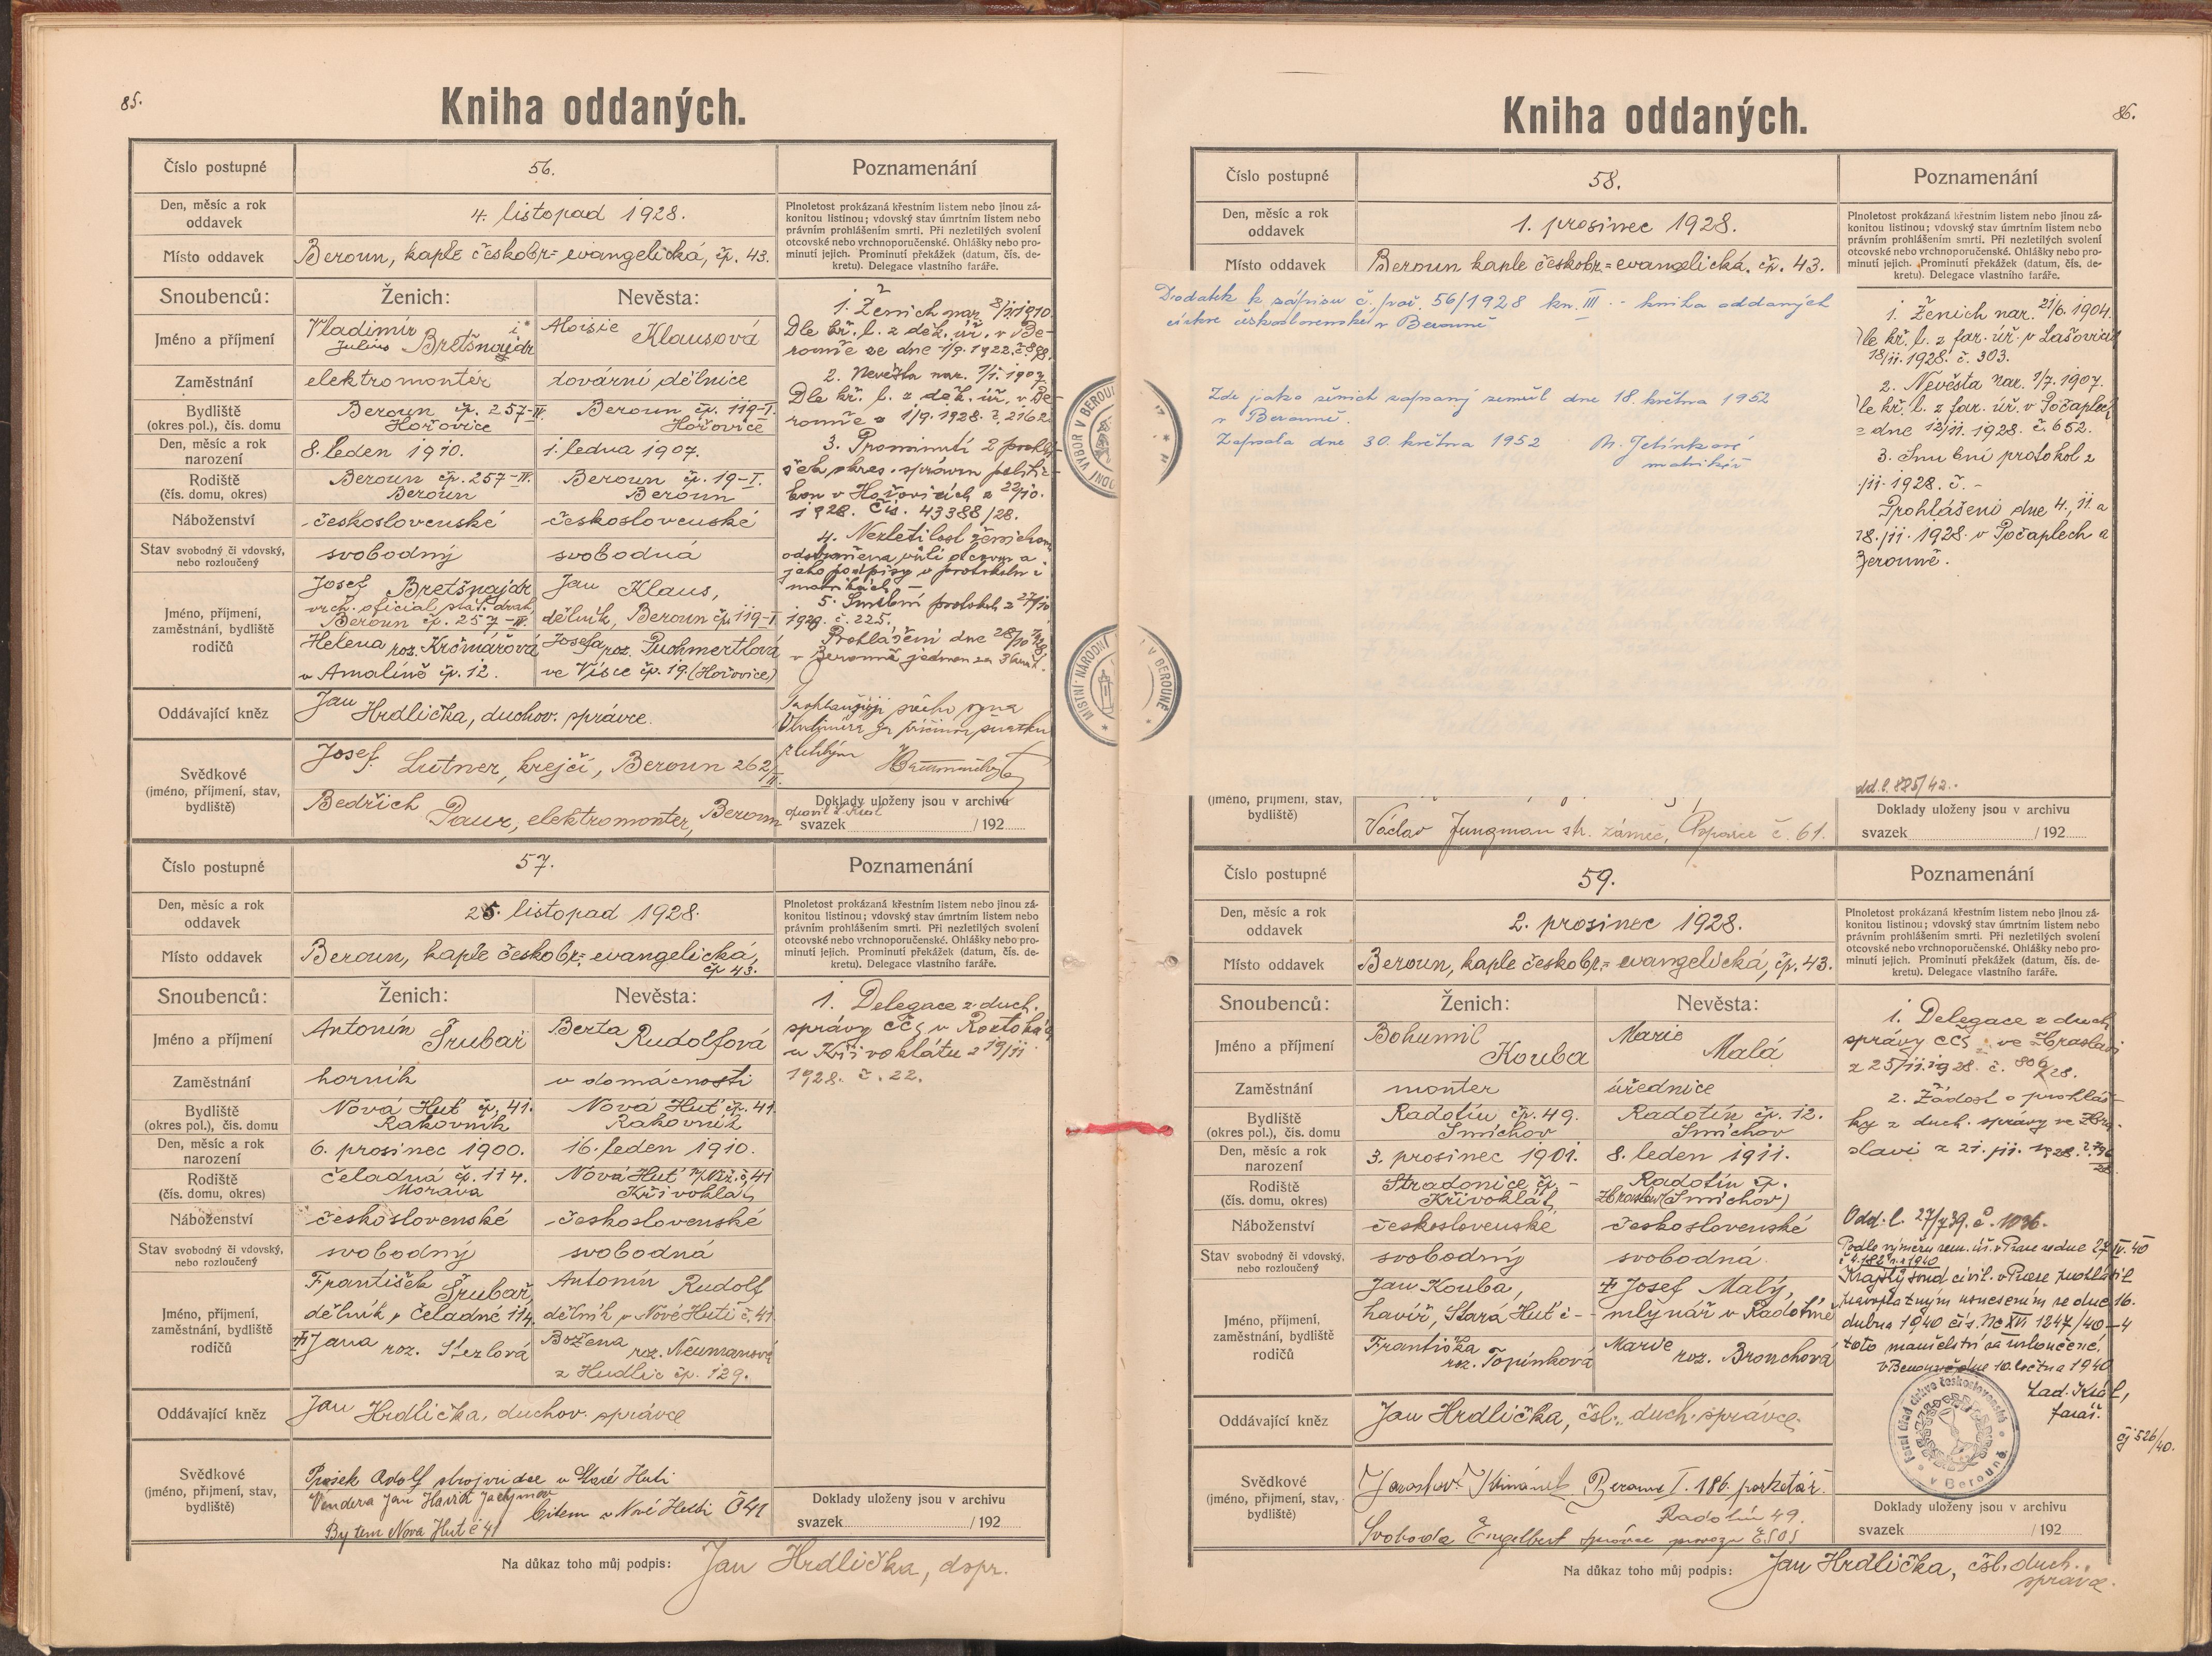 85.
Kniha oddaných.
Číslo postupné
56.
Poznamenání
Den, měsíc a rok
oddavek
4. listopad 1928.
Plnoletost prokázaná křestním listem nebo jinou zá-
konitou listinou; vdovský stav úmrtním listem nebo
právním prohlášením smrti. Při nezletilých svolení
otcovské nebo vrchnoporučenské. Ohlášky nebo pro-
minutí jejich. Prominutí překážek (datum, čís. de-
kretu). Delegace vlastního faráře.
Místo oddavek
Beroun, kaple českobr= evangelická, čp. 43.
Snoubenců:
Ženich:
Nevěsta:
Jméno a příjmení
Vladimír
Julius Bretšnajdr
Aloisie Klausová
Zaměstnání
elektromontér
tovární dělnice
Bydliště
(okres pol.), čís. domu
Beroun čp. 257-IV.
Hořovice
Beroun čp. 119-I.
Hořovice
Den, měsíc a rok
narození
8. leden 1910.
1. ledna 1907.
Rodiště
(čís. domu, okres)
Beroun čp. 257-IV.
Beroun
Beroun čp. 19-I.
Beroun
Náboženství
československé
československé
Stav svobodný či vdovský,
nebo rozloučený
svobodný
svobodná
Jméno, příjmení,
zaměstnání, bydliště
rodičů
Josef Bretšnajdr
vrch. oficial stát. drah,
Beroun čp. 257-IV.
Helena roz. Krčmářová
v Amalíně čp. 12.
Jan Klaus,
dělník, Beroun čp. 119-I.
Josefa roz. Puchmertlová
ve Vísce čp. 19. (Hořovice)
Oddávající kněz
Jan
Hrdlička, duchov. správce.
Svědkové
(jméno, příjmení, stav,
bydliště)
Josef Lutner, krejčí, Beroun 262/II.
Bedřich
Paur, elektromonter, Beroun
1. Ženich nar. 8/1.1910.
Dle kř. l. z děk. úř. v Be-
rouně ze dne 1/9. 1922. č. 898.
2. Nevěsta nar. 1/1. 1907
Dle kř. l. z děk. úř. v Be-
rouně z 1/9. 1928. č. 2162
3. Prominutí 2 prohlá-
šek okres. správou politic-
kou v Hořovicích z 22/10.
1928. čís. 43388/28.
4. Nezletilost ženichova
odstraněna vůlí otcovou a
jeho podpisy v protokolu i
matrikách.
5. Snubní protokol z 27/10
1928. č. 225.
Prohlášení dne 28/10 1928
v Berouně jednou za 3 krát.
Doklady uloženy jsou v archivu
svazek / 192
Číslo postupné
57.
Poznamenání
Den, měsíc a rok
oddavek
25. listopad 1928.
Plnoletost prokázaná křestním listem nebo jinou zá-
konitou listinou; vdovský stav úmrtním listem nebo
právním prohlášením smrti. Při nezletilých svolení
otcovské nebo vrchnoporučenské. Ohlášky nebo pro-
minutí jejich. Prominutí překážek (datum, čís. de-
kretu). Delegace vlastního faráře.
Místo oddavek
Beroun, kaple českobr= evangelická,
čp 43.
Snoubenců:
Ženich:
Nevěsta:
Jméno a příjmení
Antonín Šrubař
Berta Rudolfová
Zaměstnání
horník
v domácnosti
Bydliště
(okres pol.), čís. domu
Nová Huť čp. 41.
Rakovník
Nová Huť čp. 41
Rakovník
Den, měsíc a rok
narození
6. prosinec 1900.
16. leden 1910.
Rodiště
(čís. domu, okres)
Čeladná čp. 114.
Morava
Nová Huť p/Niž. č. 41
Křivoklát
Náboženství
československé
československé
Stav svobodný či vdovský,
nebo rozloučený
svobodný
svobodná
Jméno, příjmení,
zaměstnání, bydliště
rodičů
František Šrubař,
dělník v Čeladné 114.
Jana roz. Sterlová
Antonín Rudolf
dělník v Nové Huti č. 41
Božena roz. Neumanová
z Hudlic čp. 129.
Oddávající kněz
Jan Hrdlička, duchov. správce
Svědkové
(jméno, příjmení, stav,
bydliště)
Adolf strojvůdce v Staré Huti
Vendera Jan Havíř Jachymov
Bytem Nova Hut č 41
bitem v Nové Hutti Č 41
1. Delegace z duch.
správy CČS v Roztokách
u Křivoklátu z 19/11
1928. č. 22.
Doklady uloženy jsou v archivu
svazek / 192
Na důkaz toho můj podpis: Jan Hrdlička, dspr.
86.
Kniha oddaných.
Číslo postupné
58.
Poznamenání
Den, měsíc a rok
oddavek
1. prosinec 1928.
Plnoletost prokázaná křestním listem nebo jinou zá-
konitou listinou; vdovský stav úmrtním listem nebo
právním prohlášením smrti. Při nezletilých svolení
otcovské nebo vrchnoporučenské. Ohlášky nebo pro-
minutí jejich. Prominutí překážek (datum, čís. de-
kretu). Delegace vlastního faráře.
Místo oddavek
Beroun kaple českobr= evangelická. čp. 43.
Dodatek k zápisu č. poř. 56/1928 kn. III - kniha oddaných
církve československé v Berouně
Zde jako ženich zapsaný zemřel dne 18. května 1952
v Berouně.
Zapsala dne 30. května 1952 M. Jelínková
matrikář
1. Ženich nar. 21/6. 1904.
Dle kř. l. z far. úř. v Lašovicích
18/11. 1928. č. 303.
2. Nevěsta nar. 1/7. 1907.
Dle kř. l. z far. úř. v Počaplech
e dne 12/11. 1928. č. 652.
3. Snubní protokol z
.11. 1928. č. -
Prohlášení dne 4., 11. a
18. 11. 1928. v Počaplech a
Berouně.
dd. l. 885/42.
(jméno, příjmení, stav,
bydliště)
Václav Jungman str. zámeč, Popovice č. 61.
Doklady uloženy jsou v archivu
svazek / 192
Číslo postupné
59.
Poznamenání
Den, měsíc a rok
oddavek
2. prosinec 1928.
Plnoletost prokázaná křestním listem nebo jinou zá-
konitou listinou; vdovský stav úmrtním listem nebo
právním prohlášením smrti. Při nezletilých svolení
otcovské nebo vrchnoporučenské. Ohlášky nebo pro-
minutí jejich. Prominutí překážek (datum, čís. de-
kretu). Delegace vlastního faráře.
Místo oddavek
Beroun, kaple českobr= evangelická, čp. 43.
Snoubenců:
Ženich:
Nevěsta:
Jméno a příjmení
Bohumil Kouba
Marie Malá
Zaměstnání
monter
úřednice
Bydliště
(okres pol.), čís. domu
Radotín čp. 49.
Smíchov
Radotín čp. 12.
Smíchov
Den, měsíc a rok
narození
3. prosinec 1901.
8. leden 1911.
Rodiště
(čís. domu, okres)
Stradonice čp. -
Křivoklát
Radotín čp.
Zbraslav (Smíchov)
Náboženství
československé
československé
Stav svobodný či vdovský,
nebo rozloučený
svobodný
svobodná
Jméno, příjmení,
zaměstnání, bydliště
rodičů
Jan Kouba,
havíř, Stará Huť č -
Františka
roz. Topinková
Josef Malý,
mlynář v Radotíně
Marie roz. Bronchová
Oddávající kněz
Jan Hrdlička, čsl. duch. správce.
Svědkové
(jméno, příjmení, stav,
bydliště)
Jaroslav Beroun I. 186. parketář.
Radotín 49.
Svoboda Engelbert správce provozu
1. Delegace z duch.
správy CČS ve Zbraslavi
z 25/11. 1928. č. 806/28.
2. Žádost o prohláš-
ky z duch. správy ve Zbra-
slavi z 21. 11. 1928.
Odd. l. 27/7 39. č. 1036.
Podle výměru zem. úř. v Praze ze dne 27. IV. 40
Krajský soud civil. v Praze prohlásil
pravoplatným usnesením ze dne 16.
dubna 1940 čís. Nc XVI 1247/40-4
toto manželství za rozloučené.
V Berouně dne 10. 1940
Lad. Král,
farář.
čj 526/40.
Doklady uloženy jsou v archivu
svazek / 192
Na důkaz toho můj podpis: Jan Hrdlička, čsl. duch.
správce.